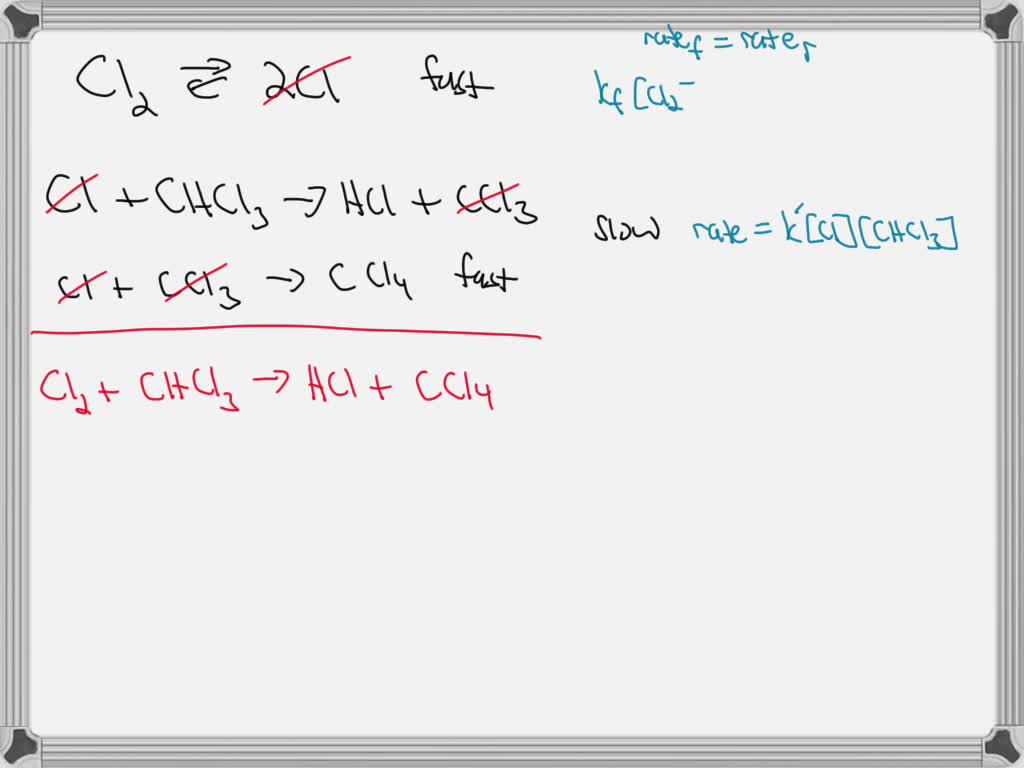 rate_f = rate_r
Cl₂ ⇌ 2Cl fast k_f [Cl₂
Cl + CHCl₃ → HCl + CCl₃ slow rate = k'[Cl][CHCl₃]
Cl + CCl₃ → CCl₄ fast
Cl₂ + CHCl₃ → HCl + CCl₄